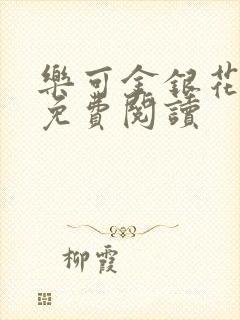 樂可金銀花
免費閱讀
柳霞